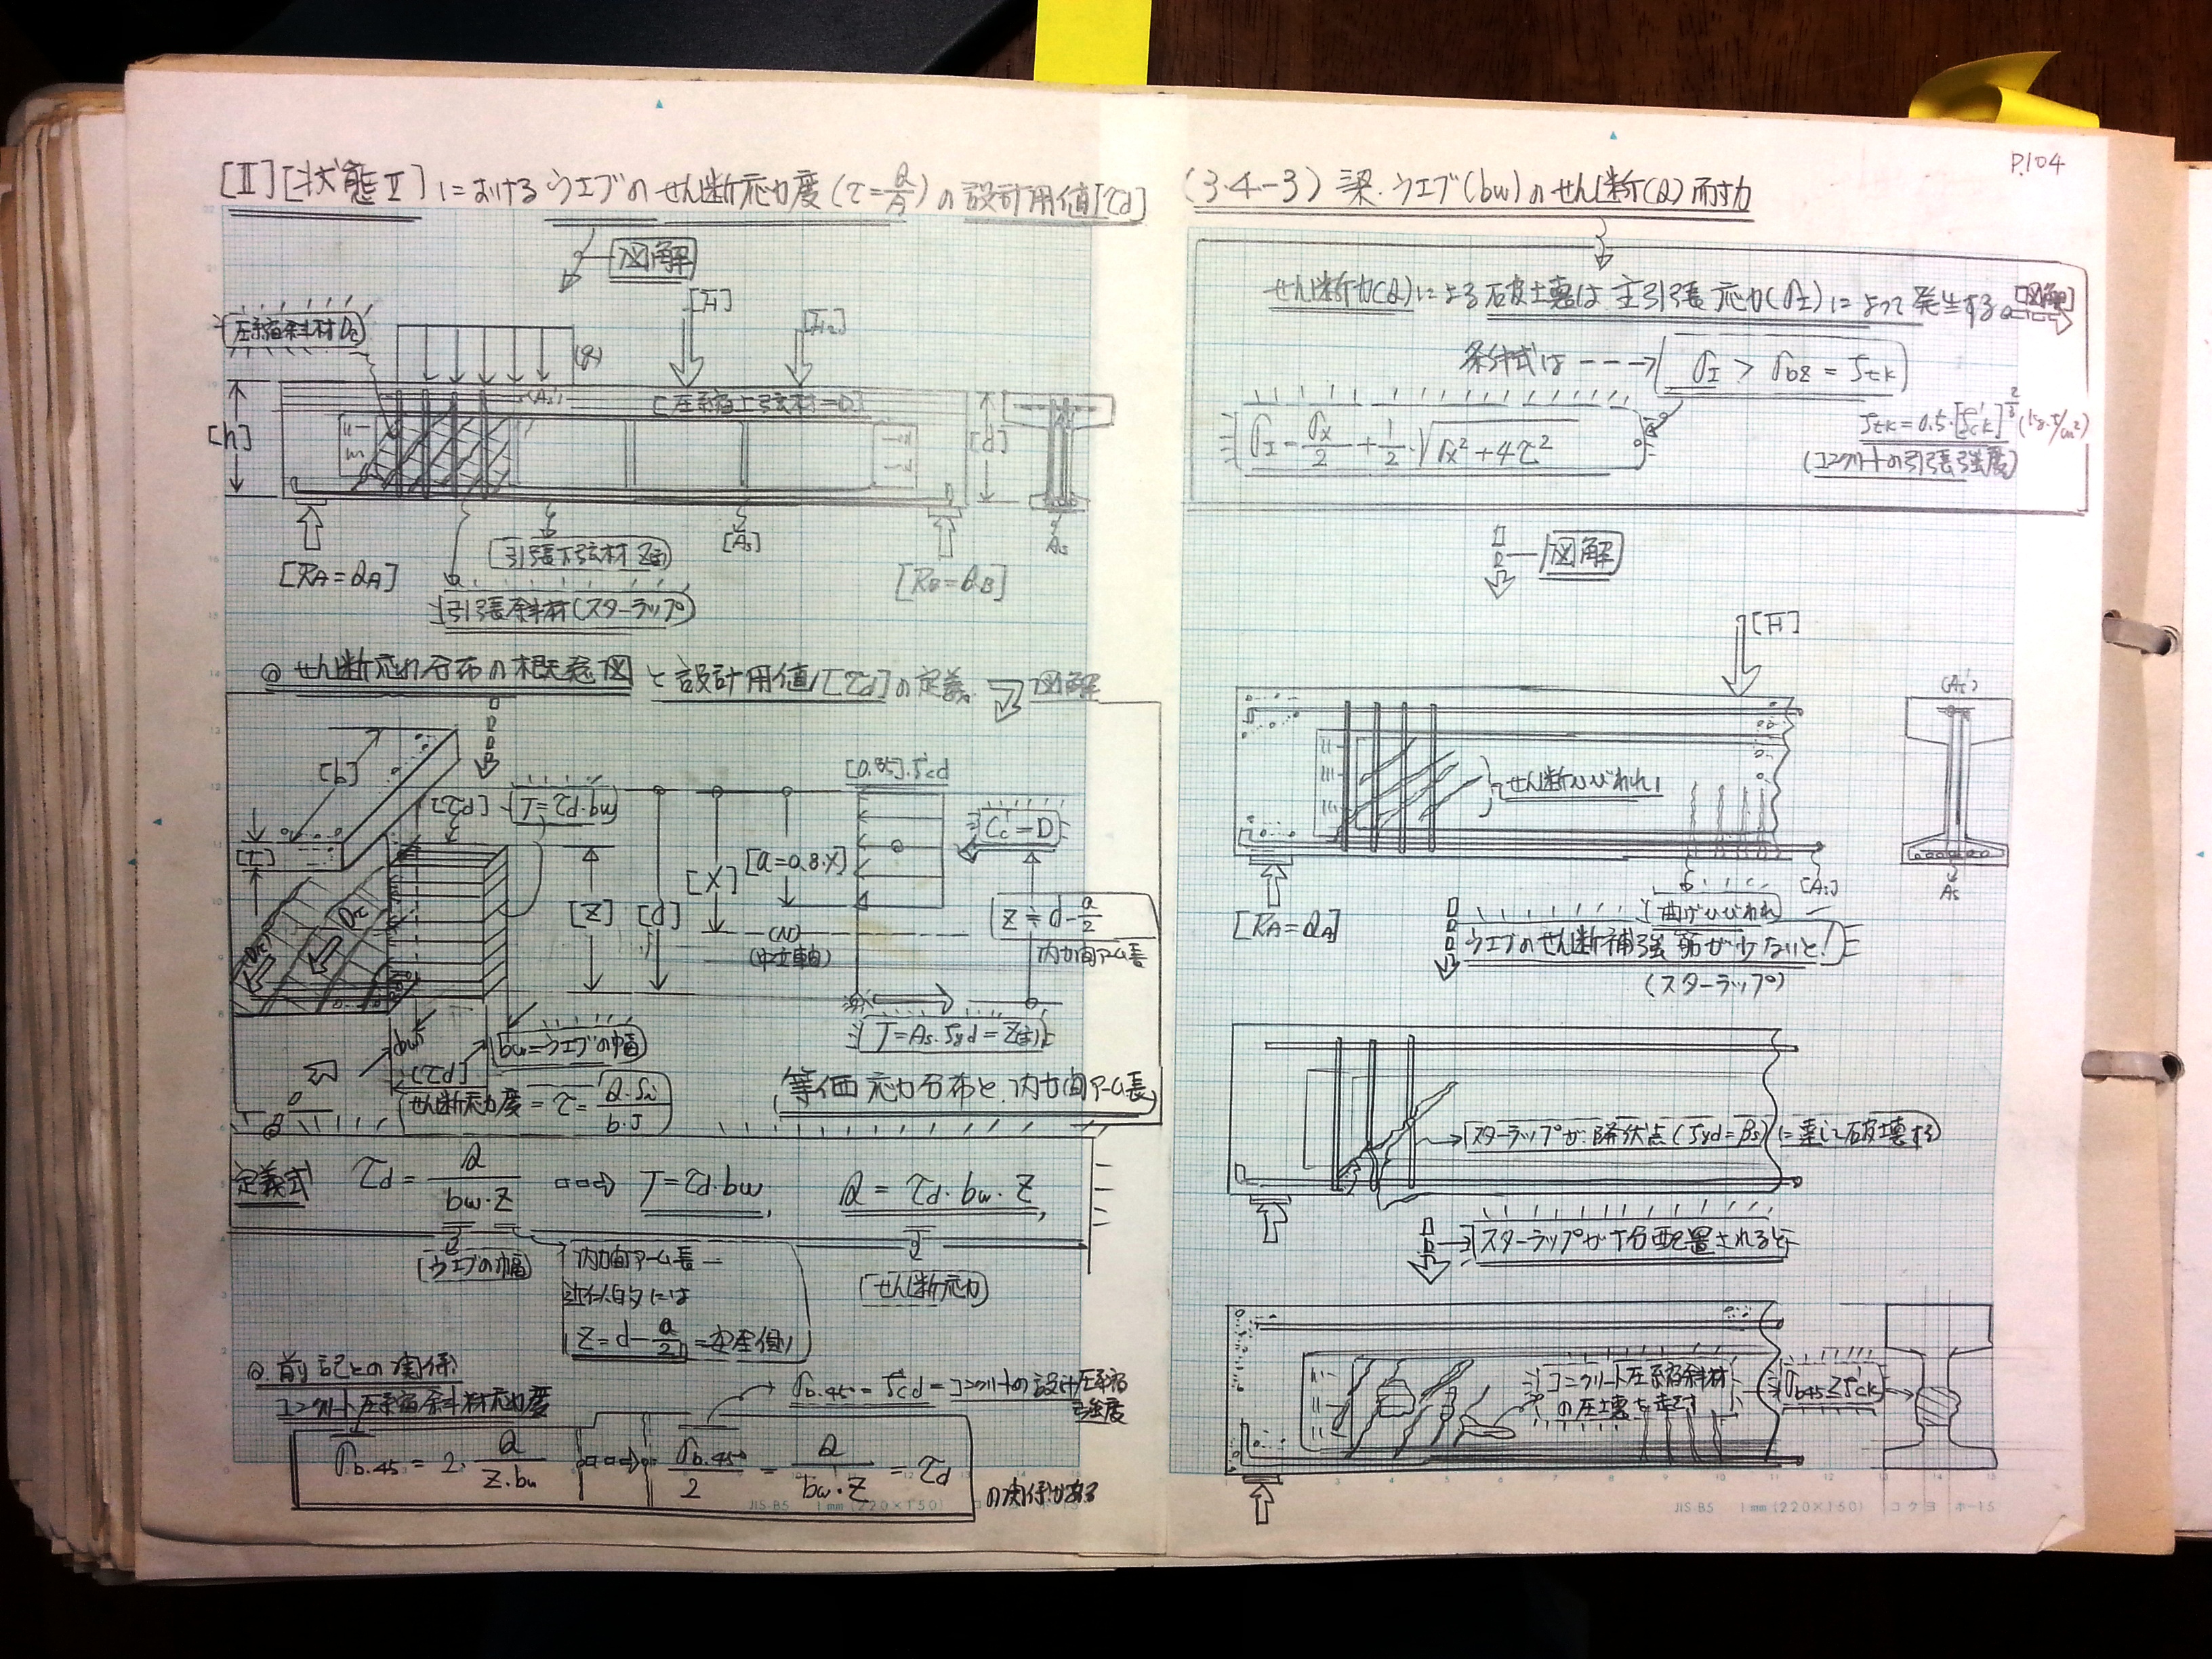 [Ⅱ][状態Ⅱ]におけるウエブのせん断応力度(τ=Q/A)の設計用値[τd]
図解
[F1]
[F2]
圧縮斜材Dc
(q)
(As')
[圧縮上弦材=D]
[h]
[d]
[引張下弦材Z]
[As]
As
[RA=QA]
[RB=QB]
引張斜材(スターラップ)
◎せん断応力分布の概念図と設計用値[τd]の定義
図解
[b]
[τd]
T=τd・bw
[0.85]・fcd
[t]
[Z]
[d]
[X]
[a=0.8・X]
Cc'=D
(N)
(中立軸)
Z≒d-a/2
内力間アーム長
T=As・fyd=Z
bw
[τd]
bw=ウエブの幅
せん断応力度=τ=Q・Si/b・J
等価応力分布と、内力間アーム長
定義式
τd=Q/bw・Z
T=τd・bw,
Q=τd・bw・Z,
(ウエブの幅)
内力間アーム長
近似的には
Z=d-a/2=安全側
(せん断応力)
◎前記との関係
コンクリート圧縮斜材応力度
σb.45°=f'cd=コンクリートの設計圧縮強度
σb.45=2・Q/Z・bw
σb.45°/2=Q/bw・Z=τd
の関係がある
JIS-B5 1mm(220×150)
P.104
(3・4-3)梁・ウエブ(bw)のせん断(Q)耐力
せん断力(Q)による破壊は主引張応力(σI)によって発生する。
[図解]
条件式は--→ σI > σbz = ftk
σI=σx/2+1/2・√σx²+4τ²
ftk=0.5・[f'ck]^2/3 (kgf/cm²)
(コンクリートの引張強度)
図解
[F]
(As')
せん断ひびわれ!
[As]
As
[RA=QA]
曲げひびわれ
ウエブのせん断補強筋が少ないと!
(スターラップ)
スターラップが降伏点(fyd=βs)に達し破壊する
スターラップが十分配置されると
コンクリート圧縮斜材
の圧壊を起す
σb45≧f'ck
JIS-B5 1mm(220×150) コクヨ ホ-15